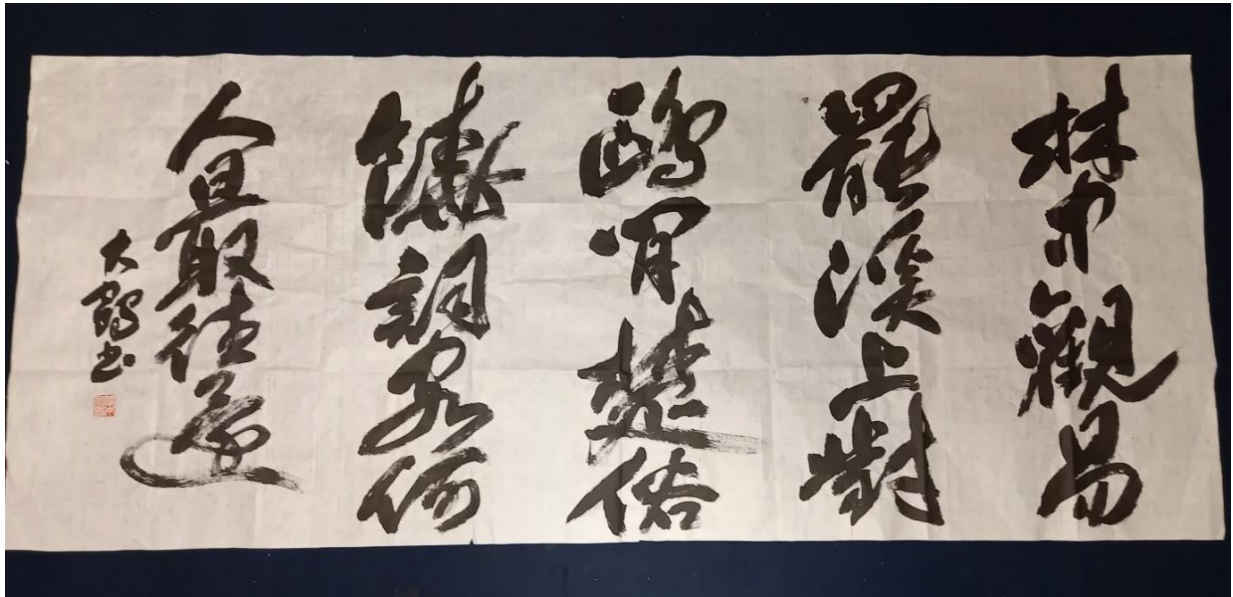 林中觀易
罷溪上對
鷗閒楚俗
饒詞客何
人最往還
大鶴書